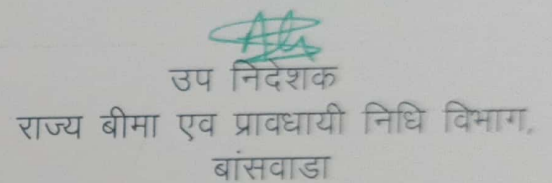 उप निदेशक
राज्य बीमा एव प्रावधायी निधि विभाग,
बांसवाडा